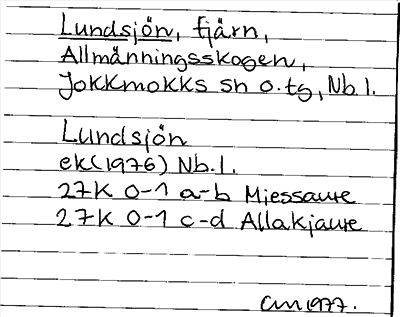 Lundsjön, tjärn,
Allmänningsskogen,
Jokkmokks sn o. tg, Nb. l.
Lundsjön
ek (1976) Nb. l.
27K 0-1 a-b Mjessaure
27K 0-1 c-d Allakjaure
1977.